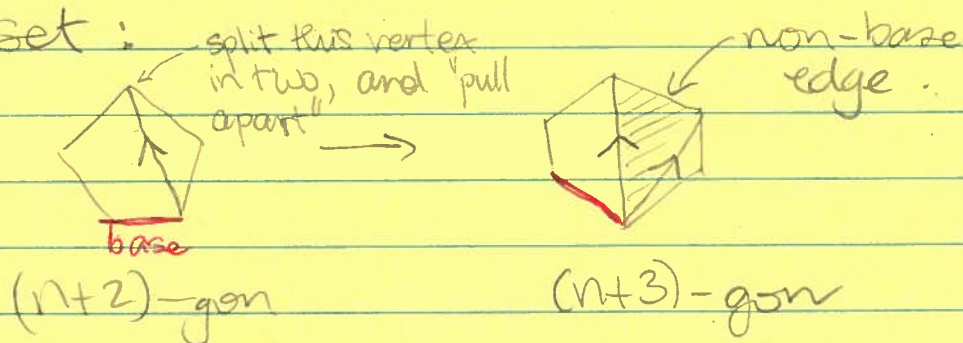 set :
split this vertex
in two, and "pull
apart"
non-base
edge .
base
(n+2)-gon
(n+3)-gon